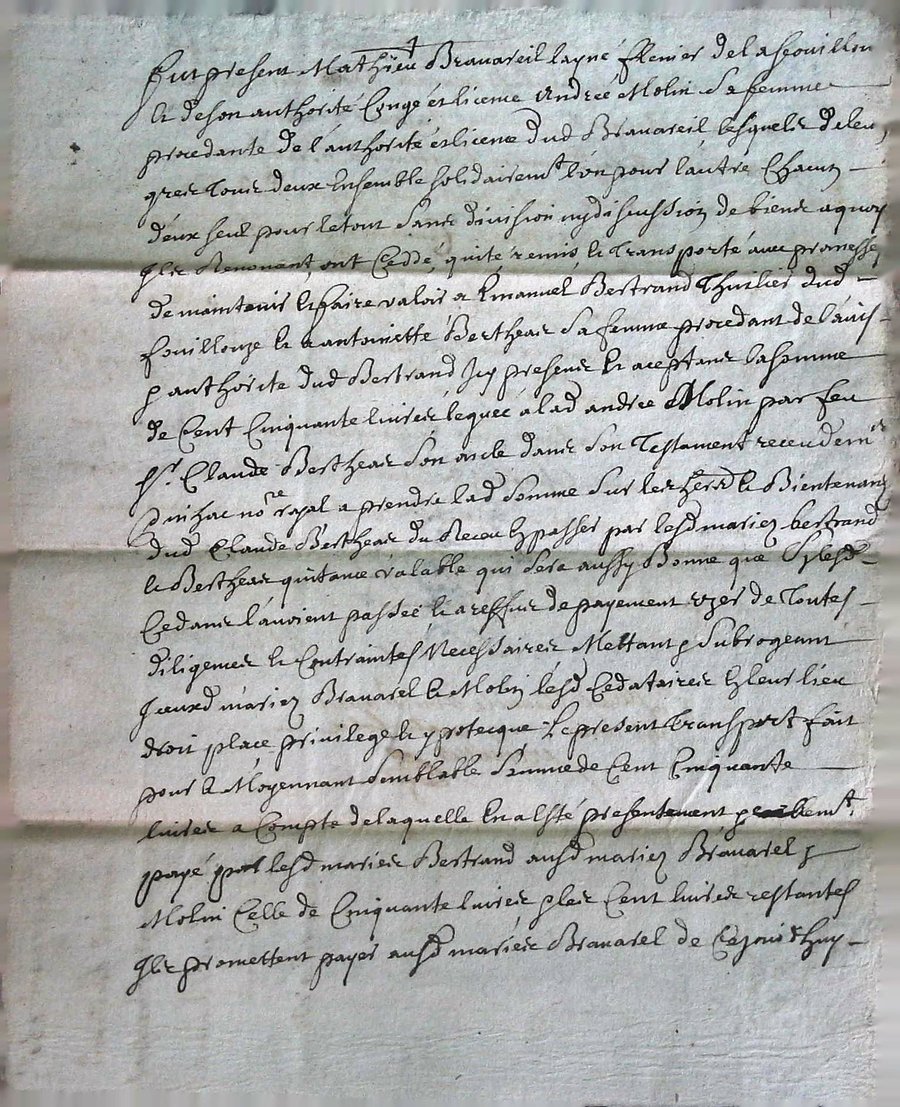 Fut present Mathieu Bravareil layné fermier de la fouillou
& de son authorité Congé et licence Andrée Molin sa femme
procedante de l'authorité et licence dud Bravareil lesquels de leu
grés tous deux Ensemble solidairemt l'un pour l'autre Chacun
d'eux seul pour le tout sans division ny discussion de biens a quoy
Ils Renoncent ont Ceddé, quité remis & Transporté avec promesse
de maintenir & faire valoir a Emanuel Bertrand Thuilier dud
fouillouze & a antoinette Berthear sa femme procedant de l'avis
& authorité dud Bertrand Icy presens & aceptans la somme
de Cent Cinquante livres leguée a lad andrée Molin par feu
sr. Claude Berthear son oncle dans son Testament receu de me
pinhac nore royal a prendre lad somme sur les hers & Bientenans
dud Claude Berthear du Receu En passer par lesd mariez bertrand
& Berthear quitance valable qui sera aussy Bonne que sy lesd
Cedans l'avoient passée & a reffus de payement user de Toutes
diligences & Contraintes Necessaires Mettant & Subrogeant
Iceuxd mariez Bravarel & Molin lesd Cedataires En leur lieu
droit place privilege & ypoteque Le present transport fait
pour & Moyennant semblable somme de Cent Cinquante
livres a Compte de laquelle En a esté presentement
payé par lesd mariez Bertrand ausd mariez Bravarel &
Molin Celle de Cinquante livres & les Cent livres restantes
Ils promettent payer ausd mariez Bravarel de Cejourdhuy